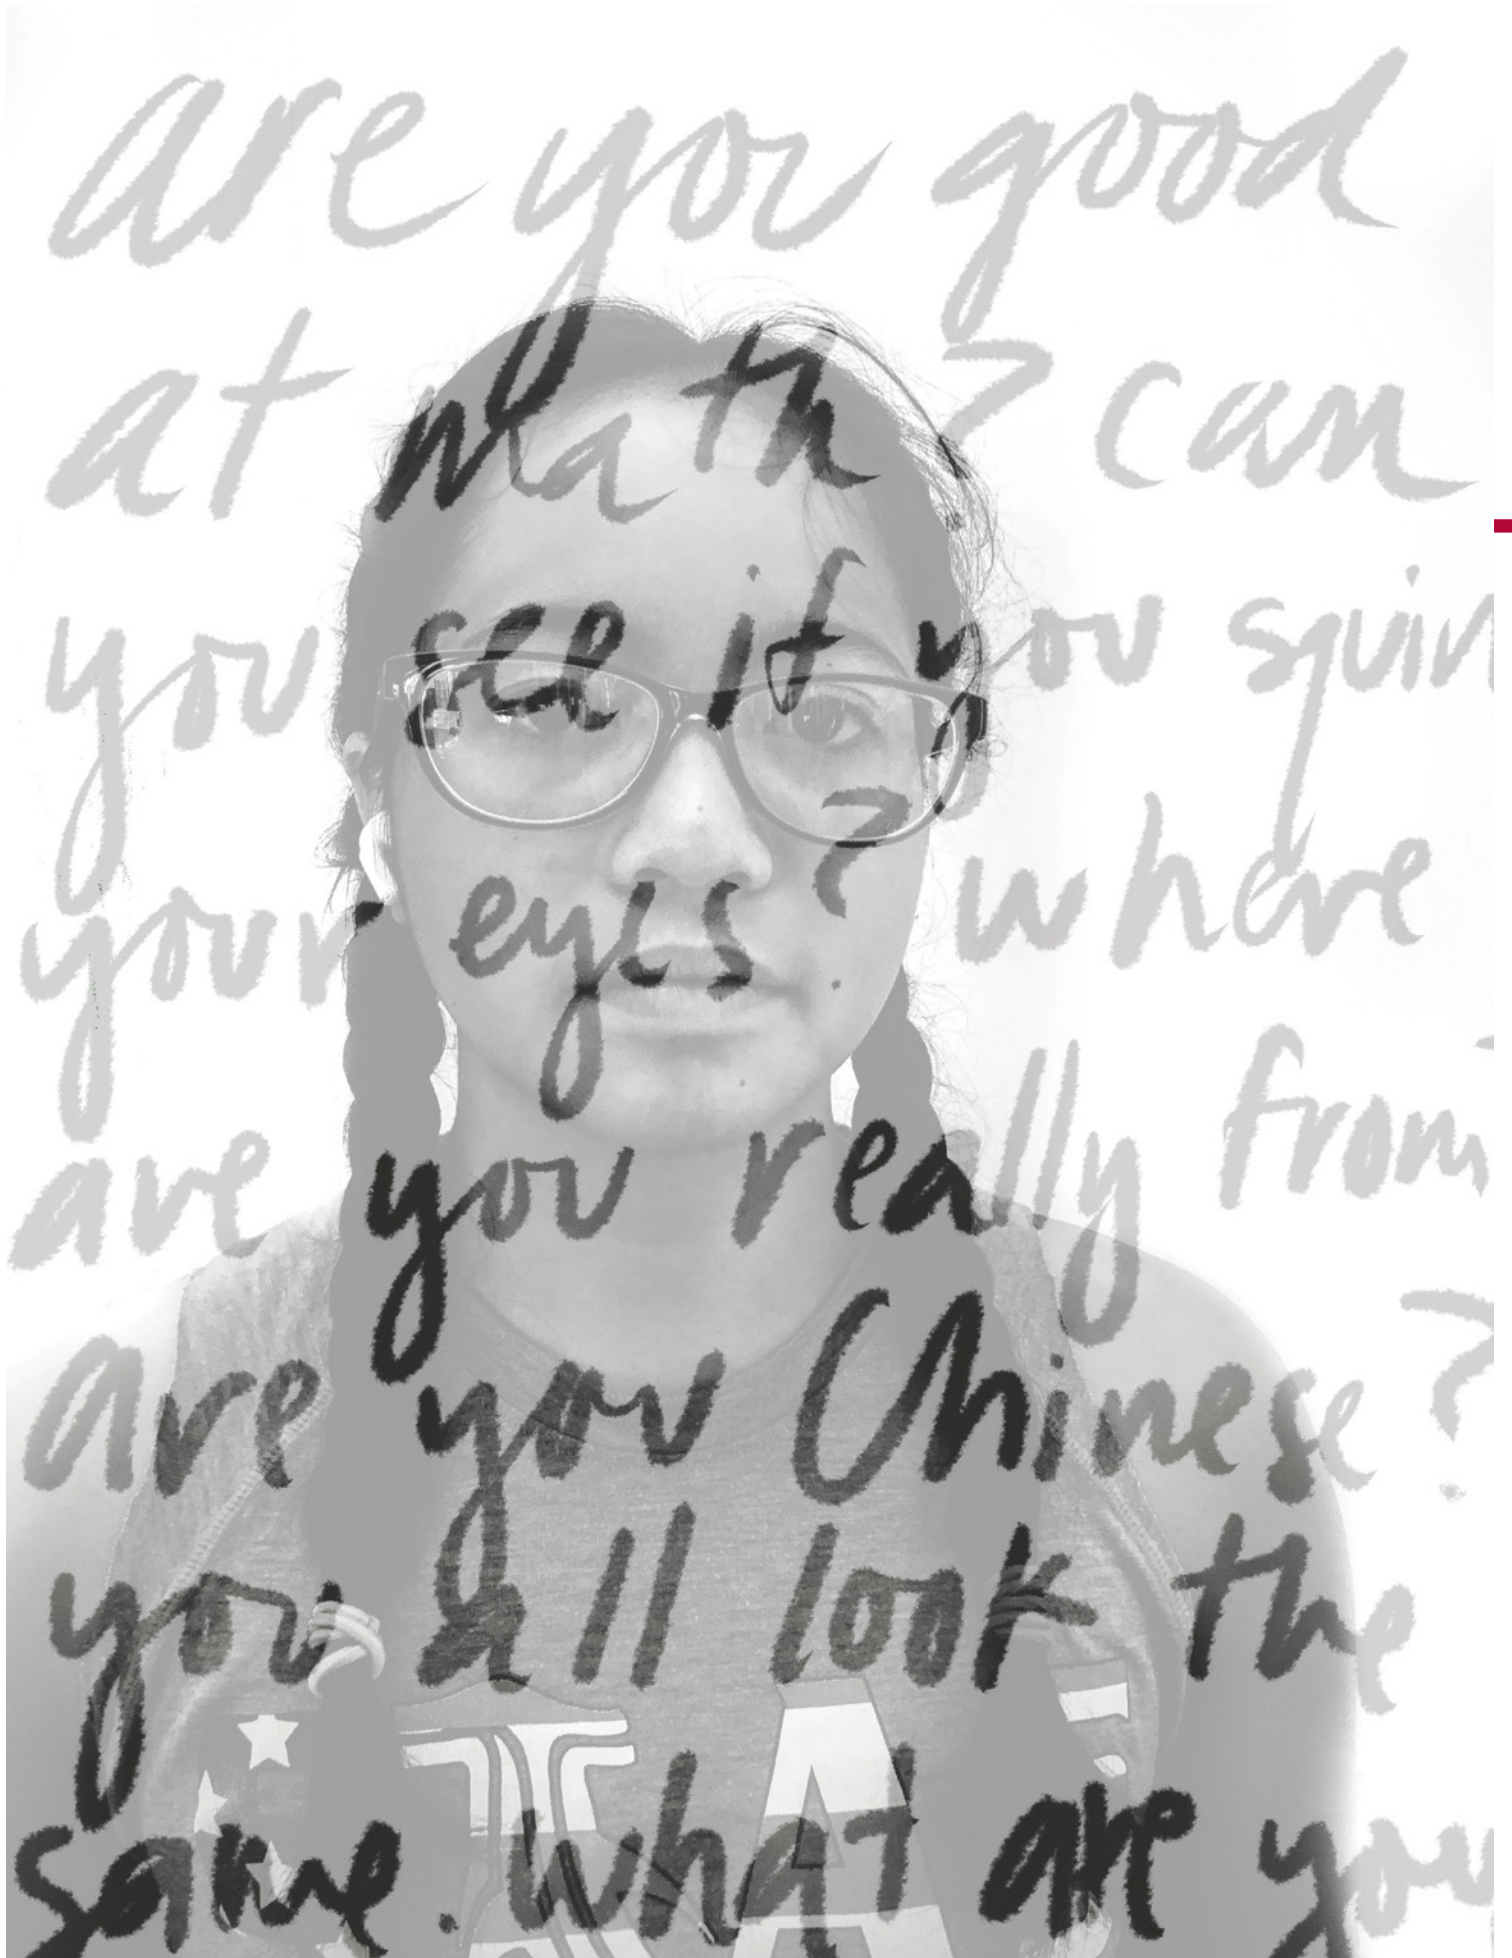 are you good
at math? can
you see if you squin
your eyes? where
are you really from?
are you Chinese?
you all look the
same. what are you